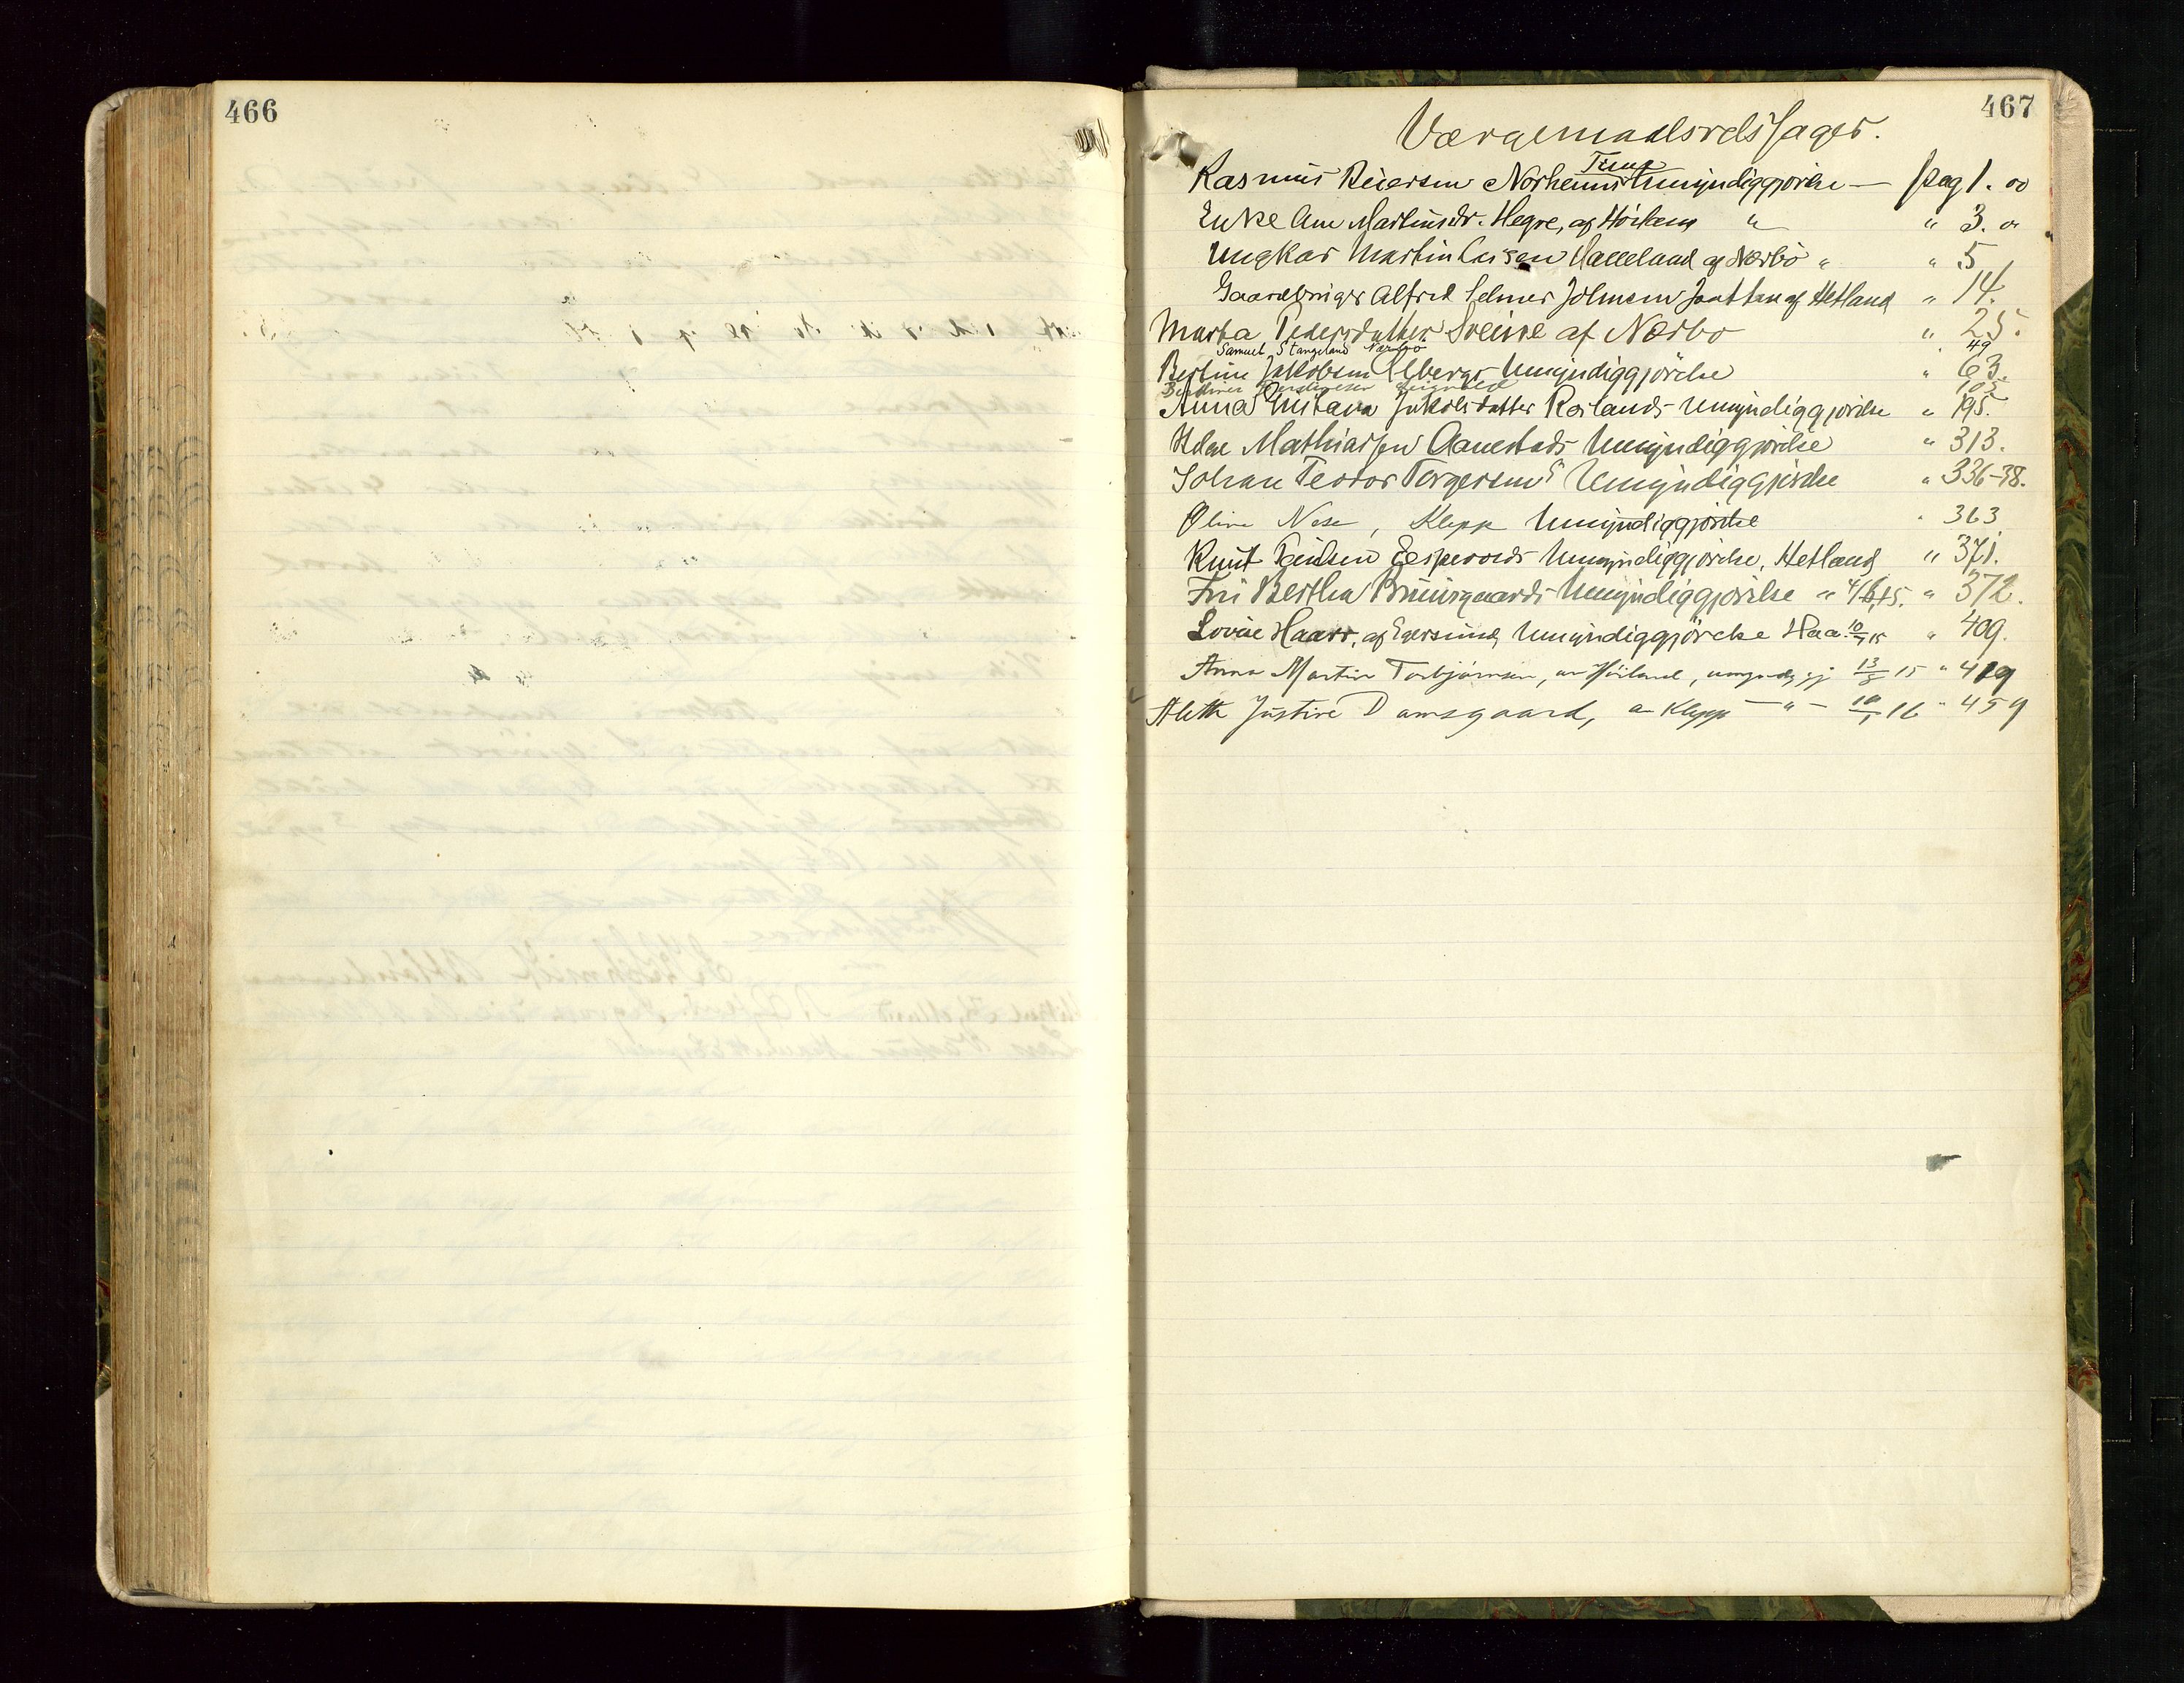 466
467
Værgemaalsrets sager.
Time
Rasmus Reiersen Norheims Umyndiggjørelse — pag 1. oo
Enke Ane Martinsdr. Hegre, af Höiland " " 3. o
Ungkar Martin Larsen Haaeland af Nærbö " " 5
Gaardbruger Alfred Selmer Johnsen Jaattun af Hetland " 14.
Marta Pedersdatter Sveinre af Nærbo " 25.
Samuel Stangeland Nærbö " 49
Bertine Jakobsen Ulbergs Umyndiggjörelse " 63.
105
Anna Gustava Jakobsdatter Roslands Umyndiggjörelse " 195.
Helene Mathiassen Aanestads Umyndiggjörelse " 313.
Johan Teodor Torgersens Umyndiggjörelse " 336-38.
Oline Nese, Klepp Umyndiggjörelse " 363
Knut Paulsen Eespevolds Umyndiggjörelse, Hetland " 371.
Fru Bertha Bruusgaards Umyndiggjörelse " 4/6 15. " 372.
Lovise Haarr, af Egersund, Umyndiggjörelse Haa 10/7 15 " 409.
Anna Martine Torbjörnsen, av Höiland, umyndiggj 13/8 15 " 419
Aleth Justine Damsgaard, av Klepp — " — 10/1 16 " 459